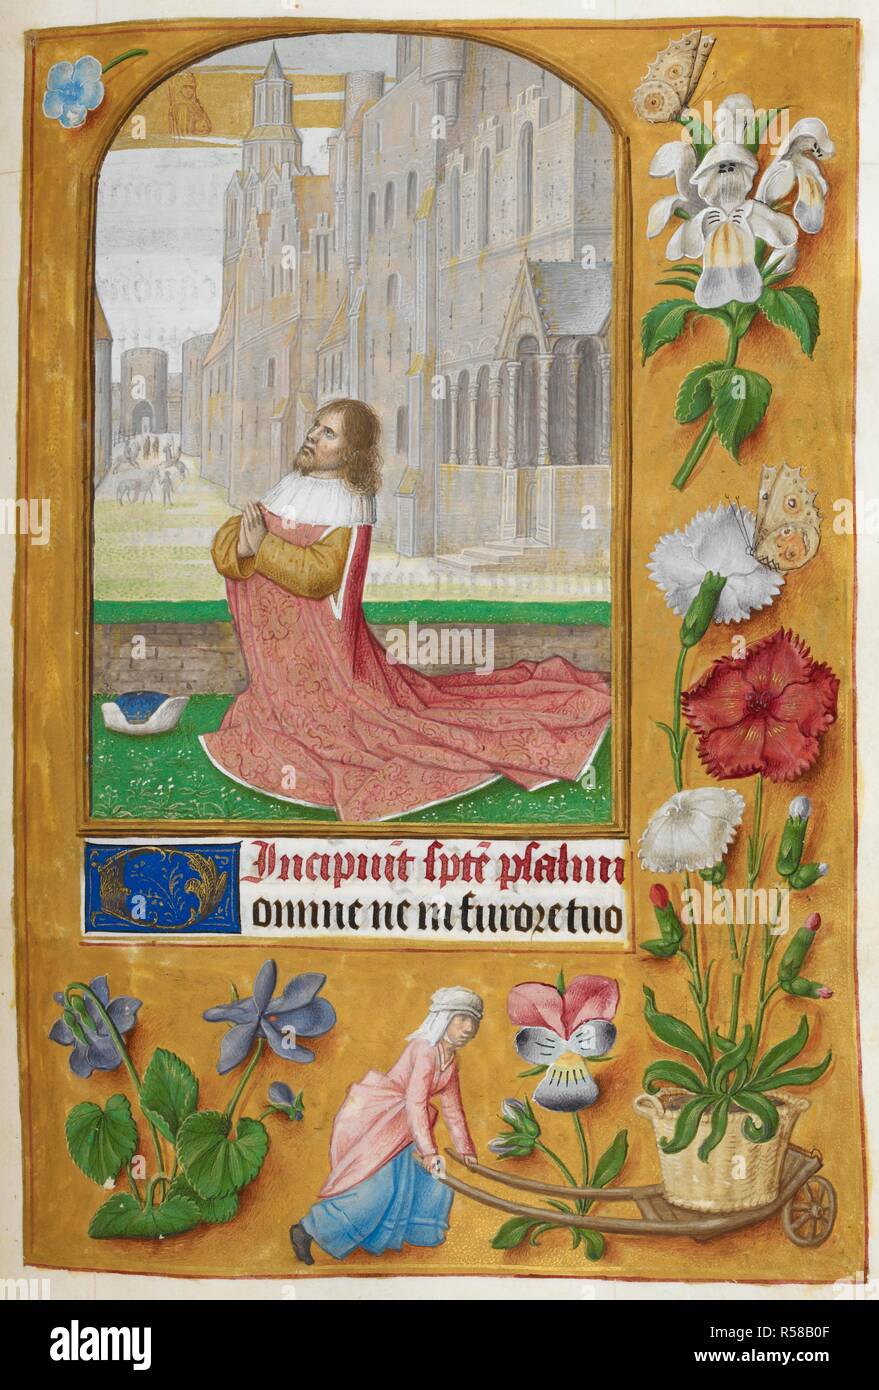 Incipiūt sptē psalmi
Domine ne in furore tuo
alamy stock photo
R58B0F
www.alamy.com